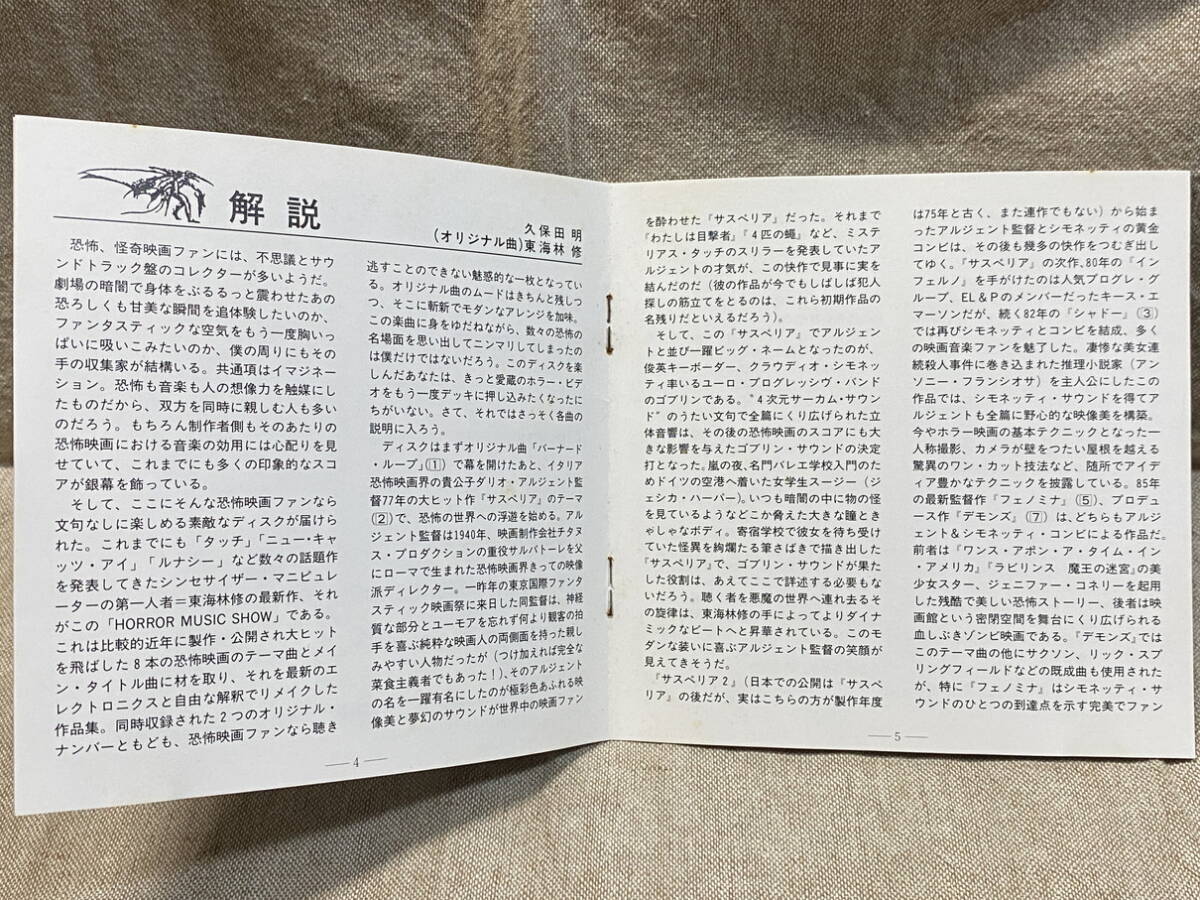 解説
久保田 明
(オリジナル曲)東海林 修
恐怖、怪奇映画ファンには、不思議とサウ
ンドトラック盤のコレクターが多いようだ。
劇場の暗闇で身体をぶるるっと震わせたあの
恐ろしくも甘美な瞬間を追体験したいのか、
ファンタスティックな空気をもう一度胸いっ
ぱいに吸いこみたいのか、僕の周りにもその
手の収集家が結構いる。共通項はイマジネー
ション。恐怖も音楽も人の想像力を触媒にし
たものだから、双方を同時に親しむ人も多い
のだろう。もちろん制作者側もそのあたりの
恐怖映画における音楽の効用には心配りを見
せていて、これまでにも多くの印象的なスコ
アが銀幕を飾っている。
そして、ここにそんな恐怖映画ファンなら
文句なしに楽しめる素敵なディスクが届けら
れた。これまでにも「タッチ」「ニュー・キャ
ッツ・アイ」「ルナシー」など数々の話題作
を発表してきたシンセサイザー・マニピュレ
ーターの第一人者＝東海林修の最新作、それ
がこの「HORROR MUSIC SHOW」である。
これは比較的近年に製作・公開され大ヒット
を飛ばした8本の恐怖映画のテーマ曲とメイ
ン・タイトル曲に材を取り、それを最新のエ
レクトロニクスと自由な解釈でリメイクした
作品集。同時収録された2つのオリジナル・
ナンバーともども、恐怖映画ファンなら聴き
逃すことのできない魅惑的な一枚となってい
る。オリジナル曲のムードはきちんと残しつ
つ、そこに斬新でモダンなアレンジを加味。
この楽曲に身をゆだねながら、数々の恐怖の
名場面を思い出してニンマリしてしまったの
は僕だけではないだろう。このディスクを楽
しんだあなたは、きっと愛蔵のホラー・ビデ
オをもう一度デッキに押し込みたくなったに
ちがいない。さて、それではさっそく各曲の
説明に入ろう。
ディスクはまずオリジナル曲「バーナード
・ループ」(①)で幕を開けたあと、イタリア
恐怖映画界の貴公子ダリオ・アルジェント監
督77年の大ヒット作『サスペリア』のテーマ
(②)で、恐怖の世界への浮遊を始める。アル
ジェント監督は1940年、映画制作会社チタヌ
ス・プロダクションの重役サルバトーレを父
にローマで生まれた恐怖映画界きっての映像
派ディレクター。一昨年の東京国際ファンタ
スティック映画祭に来日した同監督は、神経
質な部分とユーモアを忘れず何より観客の拍
手を喜ぶ純粋な映画人の両側面を持った親し
みやすい人物だったが(つけ加えれば完全な
菜食主義者でもあった！)、そのアルジェント
の名を一躍有名にしたのが極彩色あふれる映
像美と夢幻のサウンドが世界中の映画ファン
—4—
を酔わせた『サスペリア』だった。それまで
『わたしは目撃者』『4匹の蠅』など、ミステ
リアス・タッチのスリラーを発表していたア
ルジェントの才気が、この快作で見事に実を
結んだのだ(彼の作品が今でもしばしば犯人
探しの筋立てをとるのは、これら初期作品の
名残りだといえるだろう)。
そして、この『サスペリア』でアルジェン
トと並び一躍ビッグ・ネームとなったのが、
俊英キーボーダー、クラウディオ・シモネッ
ティ率いるユーロ・プログレッシヴ・バンド
のゴブリンである。"4次元サーカム・サウン
ド"のうたい文句で全篇にくり広げられた立
体音響は、その後の恐怖映画のスコアにも大
きな影響を与えたゴブリン・サウンドの決定
打となった。嵐の夜、名門バレエ学校入門のた
めドイツの空港へ着いた女学生スージー(ジ
ェシカ・ハーパー)。いつも暗闇の中に物の怪
を見ているようなどこか脅えた大きな瞳とき
ゃしゃなボディ。寄宿学校で彼女を待ち受け
ていた怪異を絢爛たる筆さばきで描き出した
『サスペリア』で、ゴブリン・サウンドが果た
した役割は、あえてここで詳述する必要もな
いだろう。聴く者を悪魔の世界へ連れ去るそ
の旋律は、東海林修の手によってよりダイナ
ミックなビートへと昇華されている。このモ
ダンな装いに喜ぶアルジェント監督の笑顔が
見えてきそうだ。
『サスペリア2』(日本での公開は『サスペ
リア』の後だが、実はこちらの方が製作年度
は75年と古く、また連作でもない)から始ま
ったアルジェント監督とシモネッティの黄金
コンビは、その後も幾多の快作をつむぎ出し
てゆく。『サスペリア』の次作、80年の『イン
フェルノ』を手がけたのは人気プログレ・グ
ループ、EL&Pのメンバーだったキース・エ
マーソンだが、続く82年の『シャドー』(③)
では再びシモネッティとコンビを結成、多く
の映画音楽ファンを魅了した。凄惨な美女連
続殺人事件に巻き込まれた推理小説家(アン
ソニー・フランシオサ)を主人公にしたこの
作品では、シモネッティ・サウンドを得てア
ルジェントも全篇に野心的な映像美を構築。
今やホラー映画の基本テクニックとなった一
人称撮影、カメラが壁をつたい屋根を越える
驚異のワン・カット技法など、随所でアイデ
ィア豊かなテクニックを披露している。85年
の最新監督作『フェノミナ』(⑤)、プロデュ
ース作『デモンズ』(⑦)は、どちらもアルジ
ェント&シモネッティ・コンビによる作品だ。
前者は『ワンス・アポン・ア・タイム・イン
・アメリカ』『ラビリンス 魔王の迷宮』の美
少女スター、ジェニファー・コネリーを起用
した残酷で美しい恐怖ストーリー、後者は映
画館という密閉空間を舞台にくり広げられる
血しぶきゾンビ映画である。『デモンズ』では
このテーマ曲の他にサクソン、リック・スプ
リングフィールドなどの既成曲も使用された
が、特に『フェノミナ』はシモネッティ・サ
ウンドのひとつの到達点を示す完美でファン
—5—